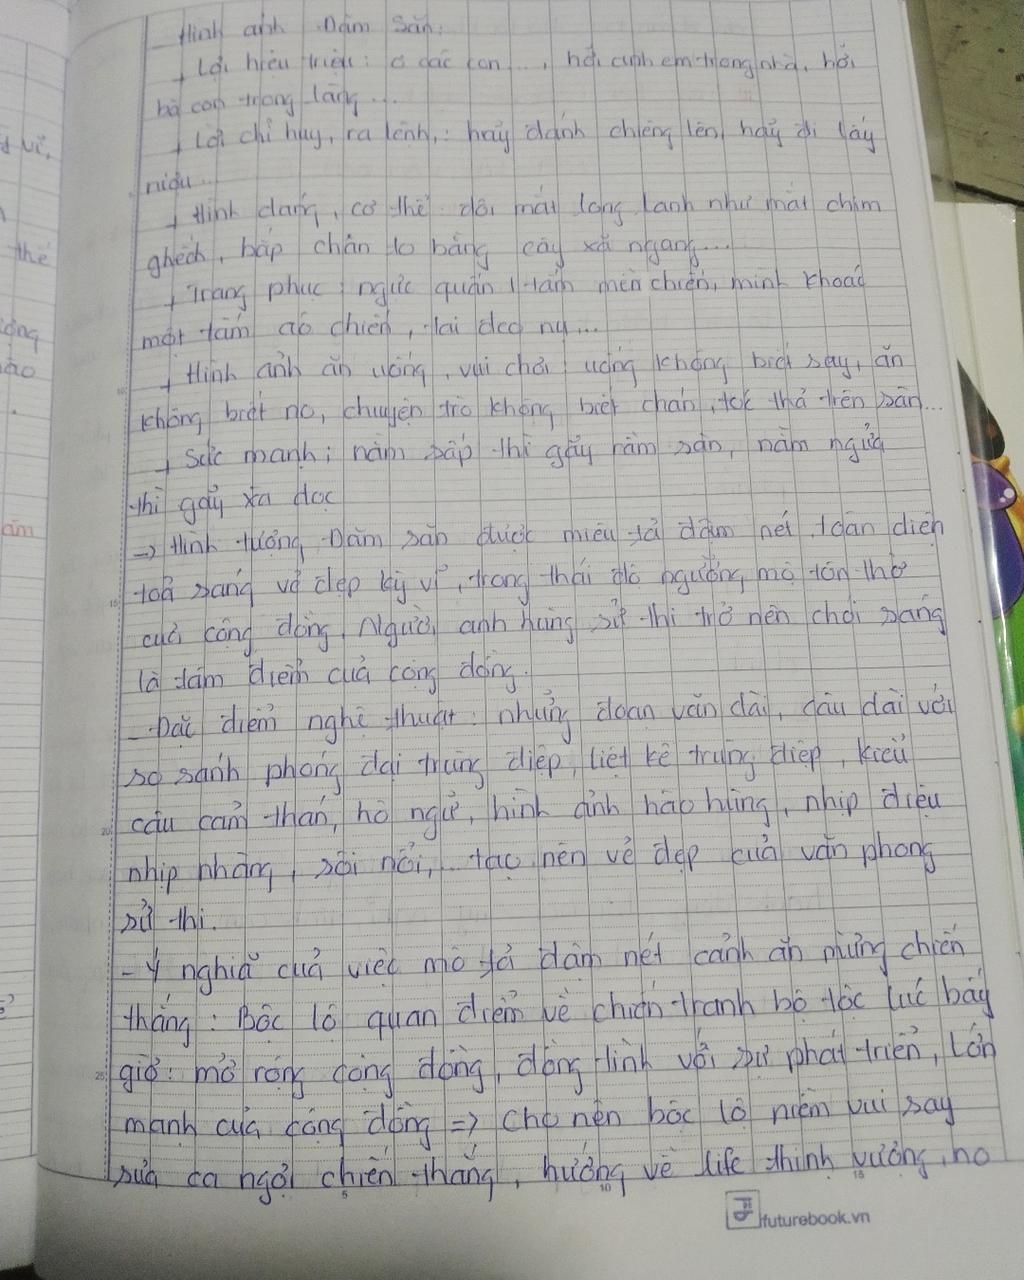 - Hình ảnh Đăm Săn:
+ Lời hiệu triệu: ơ các con ..., hỡi anh em trong nhà, hỡi
bà con trong làng ...
+ Lời chỉ huy, ra lệnh,: hãy đánh chiêng lên, hãy đi lấy
rượu ...
+ Hình dáng, cơ thể: đôi mắt long lanh như mắt chim
ghếch, bắp chân to bằng cây xà ngang ...
+ Trang phục: ngực quấn 1 tấm mền chiến, mình khoác
một tấm áo chiến, tai đeo nụ ...
+ Hình ảnh ăn uống, vui chơi: uống không biết say, ăn
không biết no, chuyện trò không biết chán, tóc thả trên sàn ...
+ Sức mạnh: nằm sấp thì gãy rầm sàn, nằm ngửa
thì gãy xà dọc
-> Hình tượng Đăm Săn được miêu tả đậm nét, toàn diện
toả sáng vẻ đẹp kỳ vĩ, trong thái độ ngưỡng mộ tôn thờ
của cộng đồng. Người anh hùng sử thi trở nên chói sáng
là tâm điểm của cộng đồng.
- Đặc điểm nghệ thuật: những đoạn văn dài, câu dài với
so sánh phóng đại trùng điệp, liệt kê trùng điệp, kiểu
câu cảm thán, hô ngữ, hình ảnh hào hùng, nhịp điệu
nhịp nhàng, sôi nổi, ... tạo nên vẻ đẹp của văn phong
sử thi.
- Ý nghĩa của việc mô tả đậm nét cảnh ăn mừng chiến
thắng: Bộc lộ quan điểm về chiến tranh bộ tộc lúc bấy
giờ: mở rộng cộng đồng, đồng tình với sự phát triển, lớn
mạnh của cộng đồng => Cho nên bộc lộ niềm vui say
sưa ca ngợi chiến thắng, hướng về life thịnh vượng, no
futurebook.vn